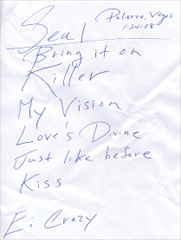 Seal
Palazzo, Vegas
1-24-08
Bring it on
Killer
My Vision
Love's Divine
Just like before
Kiss
E: Crazy